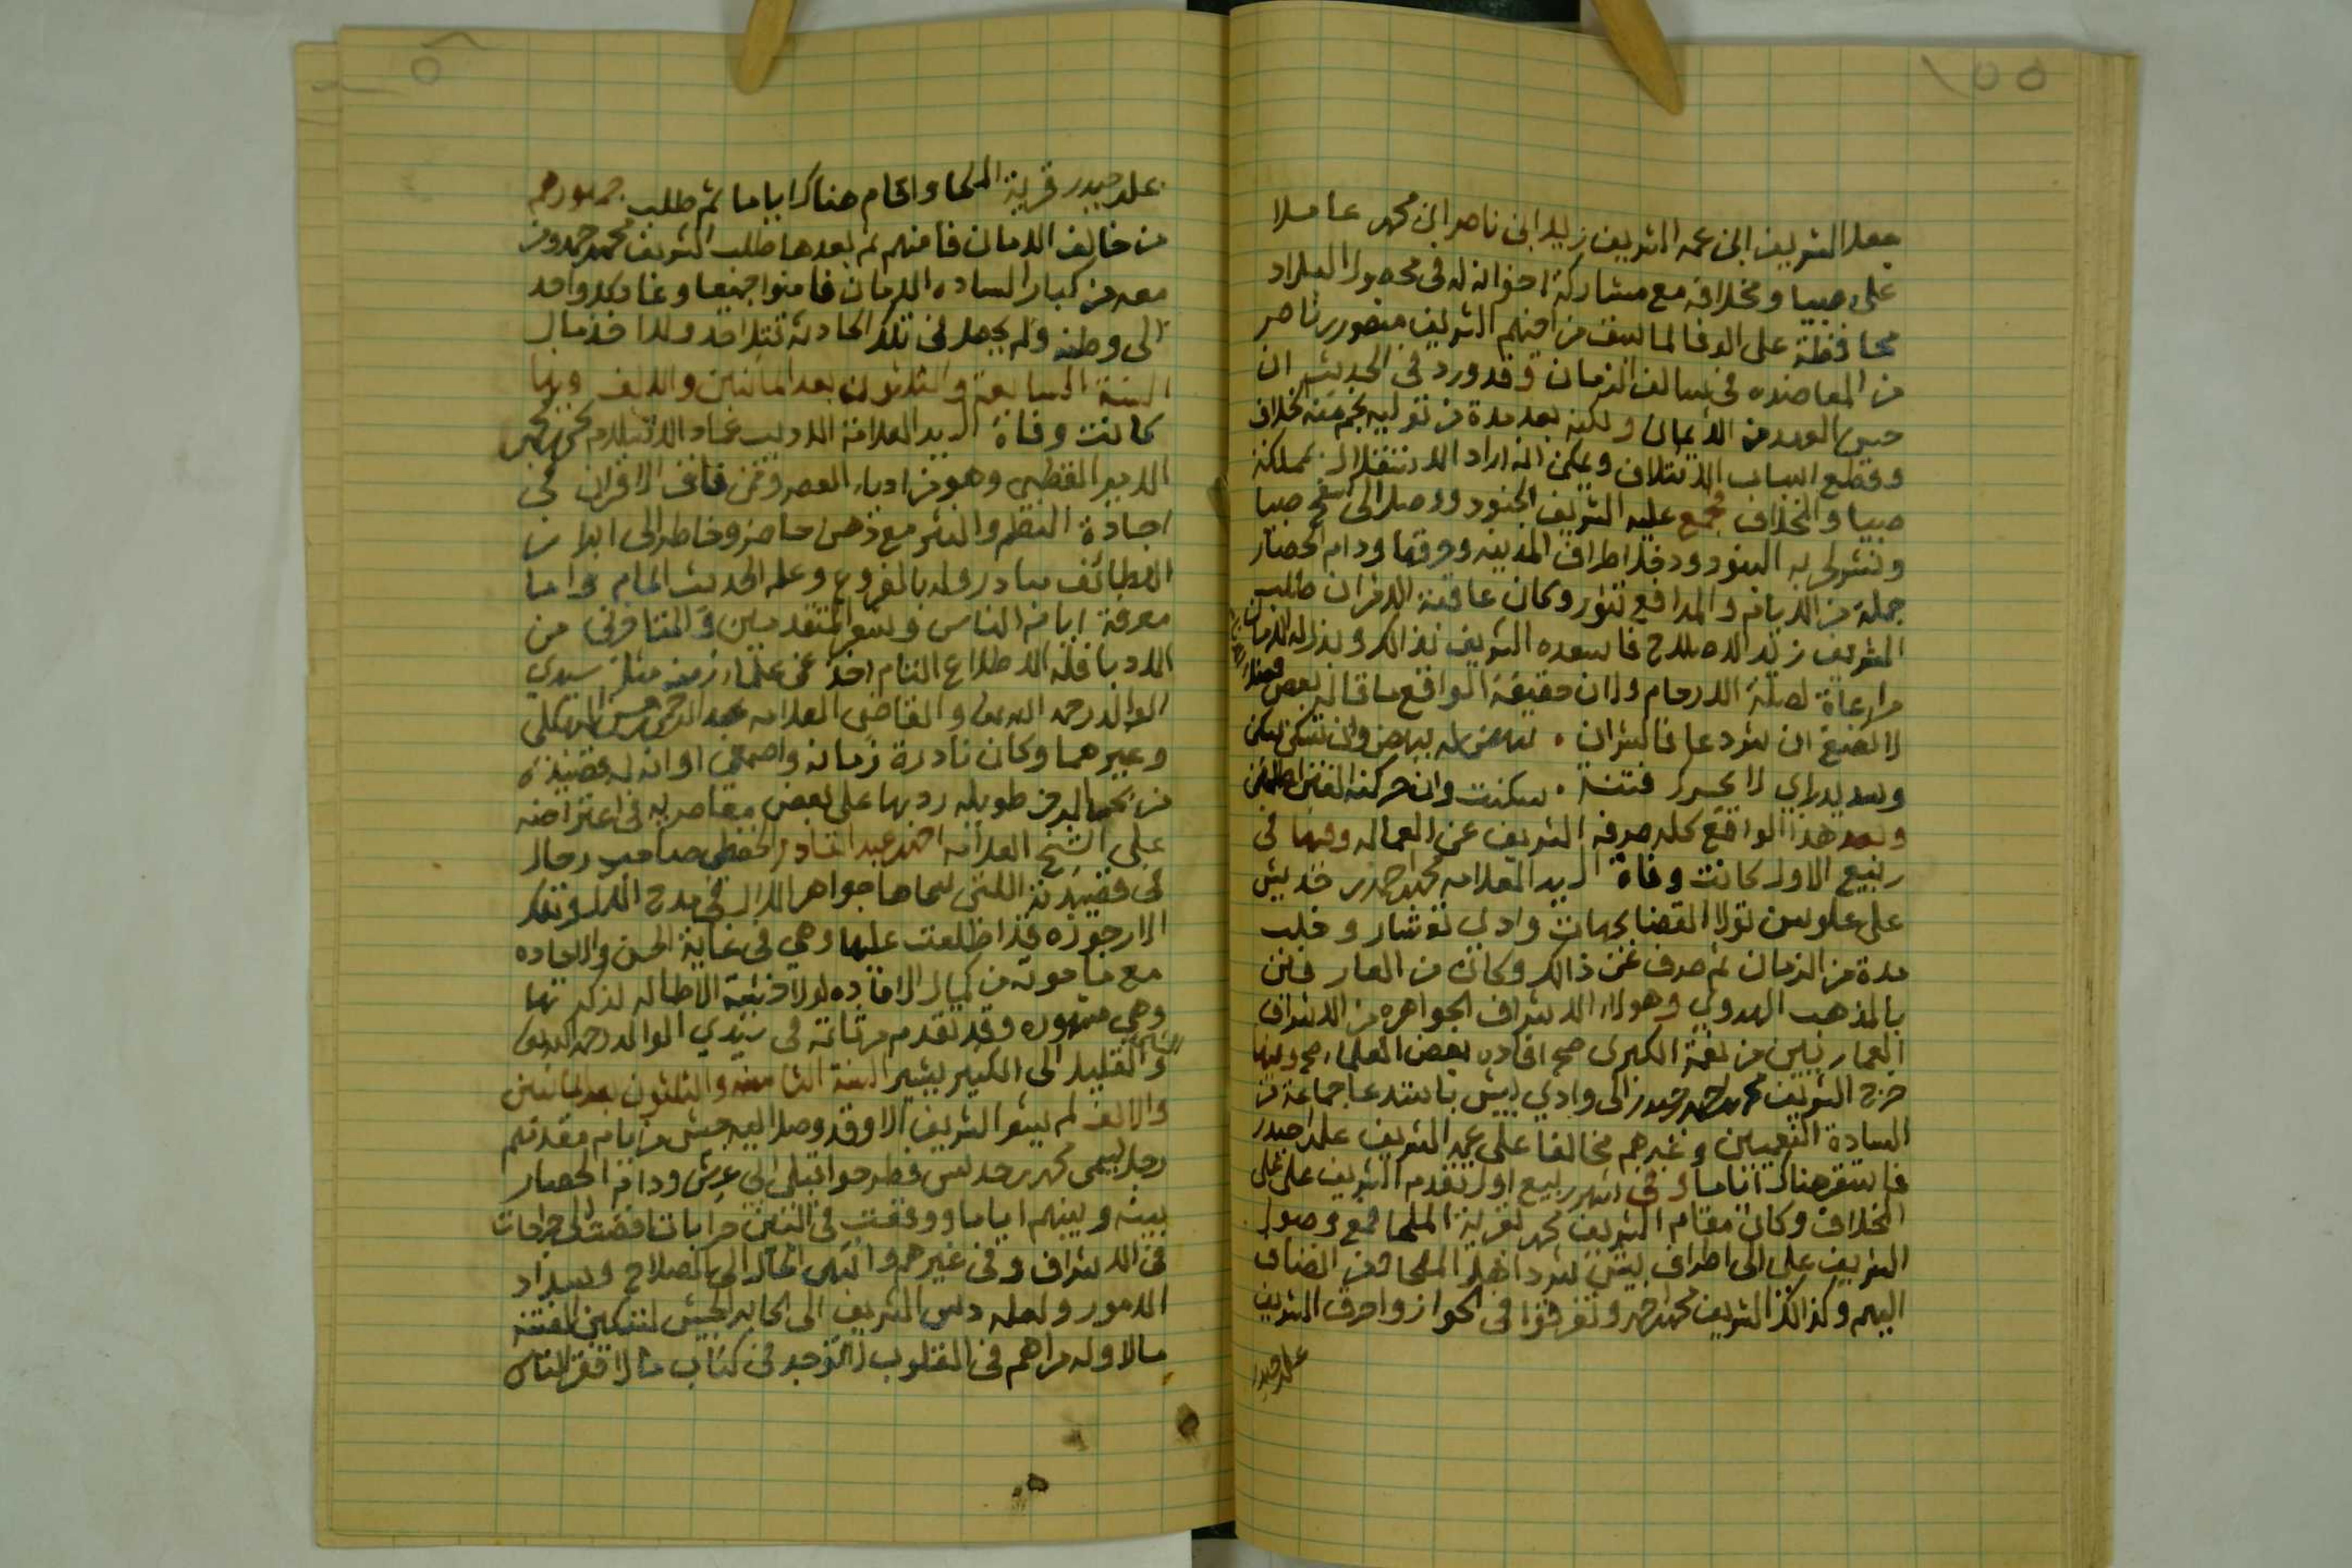 ٥٥١
جعل الشريف ابن عمه الشريف زيد ابن ناصر ابن محمد عاملا
على صبيا ومخلافه مع مشاركة اخوانه له في محصول البلاد
محافظة على الوفا لما سبق من اخيهم الشريف منصور بن ناصر
من المعاضده في سالف الزمان وقد ورد في الحديث ان
حسن العهد من الايمان ولكنه بعد مدة من توليه نجم منه الخلاف
وقطع اسباب الائتلاف ويمكن انه اراد الاستقلال بمملكة
صبيا والمخلاف فجمع عليه الشريف الجنود ووصل الى سفح صبيا
ونشر لحربه البنود ودخل اطراف المدينه وحرقها ودام الحصار
جملة من الايام والمدافع تثور وكان عاقبة الامر ان طلب
الشريف زيد الاصلاح فاسعده الشريف لذالك وبذل له الامان
مراعاة لصلة الارحام وان حقيقة الواقع ما قاله بعض
لا تصنع ان شر دعا فالشران ، تنهض له ينهض وان تسكن سكن
وسديد راي لا يحرك فتنة ، سكنت وان حركته الفتن اطمئن
وبعد هذا الواقع كله صرفه الشريف عن العماله وفيها في
ربيع الاول كانت وفاة السيد العلامه محمد احمد بن خديش
على علوس تولا القضا بجهات وادي تعشار وخلب
مدة من الزمان ثم صرف عن ذالك وكان من العارفين
بالمذهب الهدوي وهولاء الاشراف الجواهره من الاشراف
العماريين من نعمة الكبرى صح افاده بعض العلماء صح وفيها
خرج الشريف محمد احمد حيدر الى وادي بيش باستدعا جماعة من
السادة النعميين وغيرهم مخالفا على عمه الشريف علي حيدر
فاستقر هناك اياما وفي شهر ربيع اول تقدم الشريف علي على
الخلاف وكان مقام الشريف محمد بقرية الملحا فمع وصول
الشريف علي الى اطراف بيش شرد اهل الملحا ومن انضاف
اليهم وكذالك الشريف محمد احمد وتفرقوا في الحواز واحرق الشريف
علي حيدر
علي حيدر قرية الملحا واقام هناك اياما ثم طلب جمهورهم
من خالف الامان فامنهم ثم بعدها طلب الشريف محمد احمد ومن
معه من كبار السادة الامان فامنوا جميعا وعاد كل واحد
الى وطنه ولم يحصل في تلك الحادثة قتل احد ولا اخذ مال
السنة السابعة والثلاثون بعد المائتين والالف وبها
كانت وفاة السيد العلامة الاديب عماد الاسلام يحيى محسن
الامير القطبي وهو من ادباء العصر وممن فاق الاقران في
اجادة النظم والنثر مع ذهن حاضر وخاطر الى ابراز
اللطائف مبادر وله بالفروع وعلم الحديث المام واما
معرفة ايام الناس وشعر المتقدمين والمتاخرين من
الادبا فله الاطلاع التام اخذ عن علماء زمنه مثل سيدي
الوالد رحمه الله والقاضي العلامه عبد الرحمن حسن البهكلي
وغيرهما وكان نادرة زمانه واصمعي اوانه له قصيدة
من بحر الرجز طويله رد بها على بعض معاصريه في اعتراضه
على الشيخ العلامه احمد عبد القادر الحفظي صاحب رجال
في قصيدته اللتي سماها جواهر اللال في مدح الال وتلك
الارجوزه قد اطلعت عليها وهي في غاية الحسن والاجاده
مع ما حوته من كمال الافاده لولا خشية الاطاله لذكرتها
وهي مشهوره وقد تقدم مرثاته في سيدي الوالد رحمه الله
والقليل الى الكثير يشير السنة الثامنه والثلاثون بعد المائتين
والالف لم يشعر الشريف الا وقد وصل اليه جيش من يام مقدمهم
رجل يسمى محمد بن حديس فطرحوا قبلي ابي عريش ودام الحصار
بينه وبينهم اياما ووقعت في البين حرابات افضت الى جراحات
في الاشراف وفي غيرهم وانتهى الحال الى الصلاح وسداد
الامور ولعله دس الشريف الى اكابر الجيش لتسكين الفتنه
مالا وله مراهم في القلوب لا توجد في كتاب ما لا فقر الناس